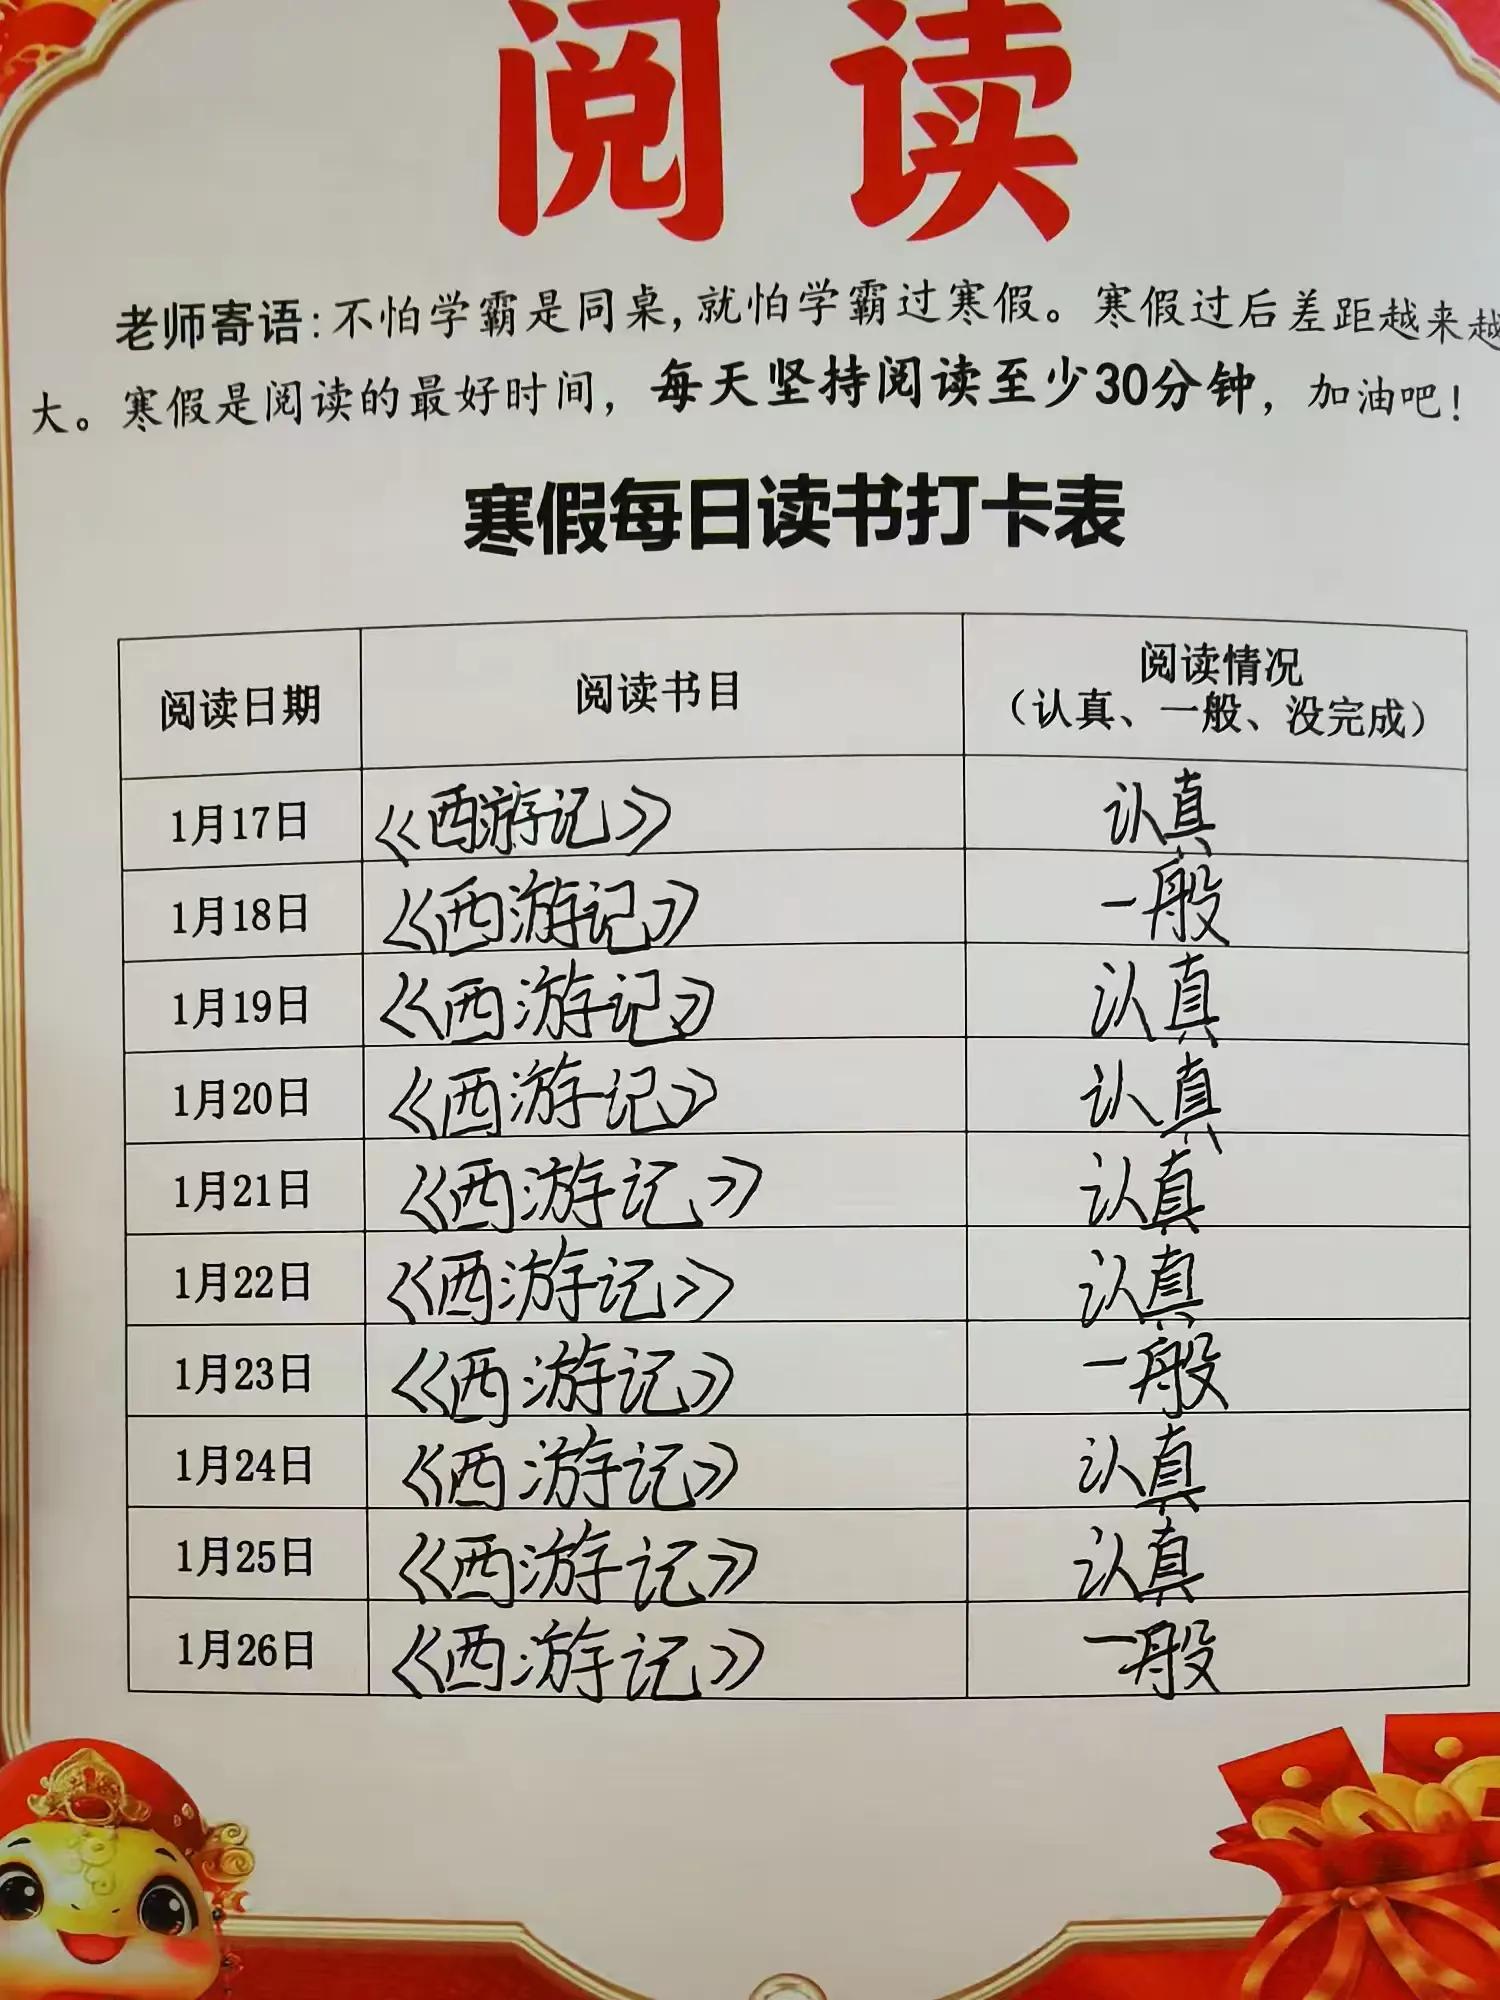 阅读
老师寄语:不怕学霸是同桌,就怕学霸过寒假。寒假过后差距越来越
大。寒假是阅读的最好时间，每天坚持阅读至少30分钟，加油吧！
寒假每日读书打卡表
阅读日期 阅读书目 阅读情况
（认真、一般、没完成）
1月17日 《西游记》 认真
1月18日 《西游记》 一般
1月19日 《西游记》 认真
1月20日 《西游记》 认真
1月21日 《西游记》 认真
1月22日 《西游记》 认真
1月23日 《西游记》 一般
1月24日 《西游记》 认真
1月25日 《西游记》 认真
1月26日 《西游记》 一般